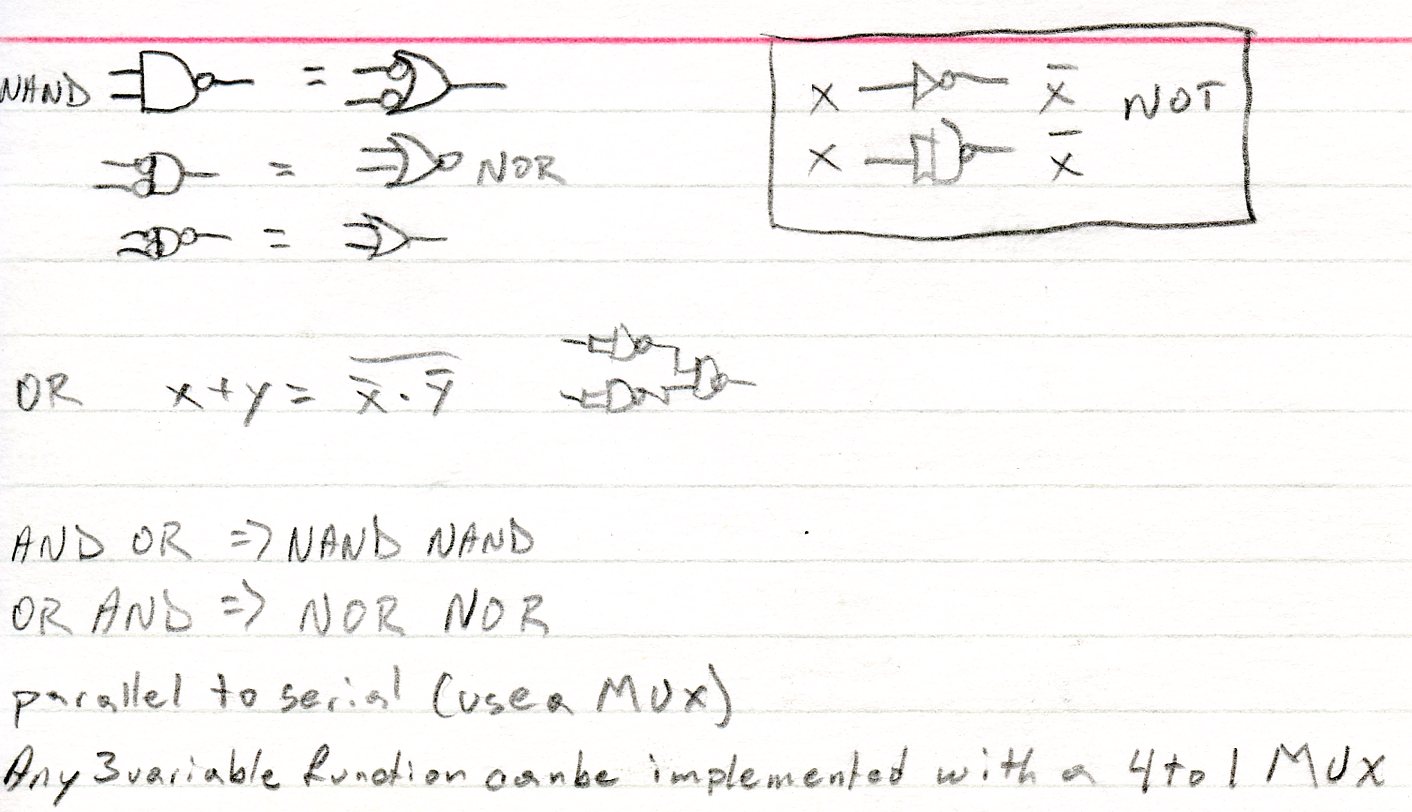 NAND = 
x x̄ NOT
x x̄
= NOR
=
OR x+y = \overline{x̄ · ȳ}
AND OR => NAND NAND
OR AND => NOR NOR
parallel to serial (use a MUX)
Any 3 variable function can be implemented with a 4 to 1 MUX